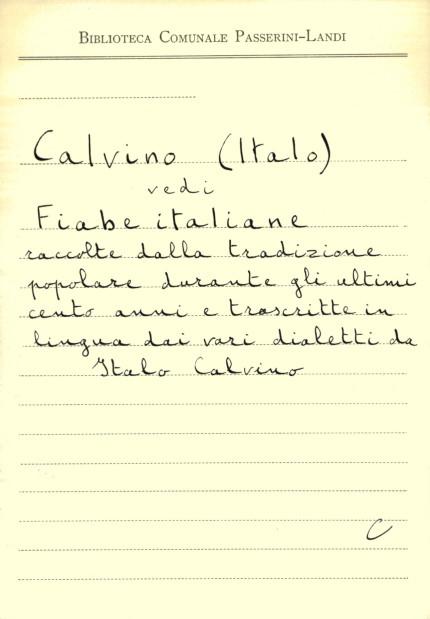 BIBLIOTECA COMUNALE PASSERINI-LANDI
Calvino (Italo)
vedi
Fiabe italiane
raccolte dalla tradizione
popolare durante gli ultimi
cento anni e trascritte in
lingua dai vari dialetti da
Italo Calvino
C